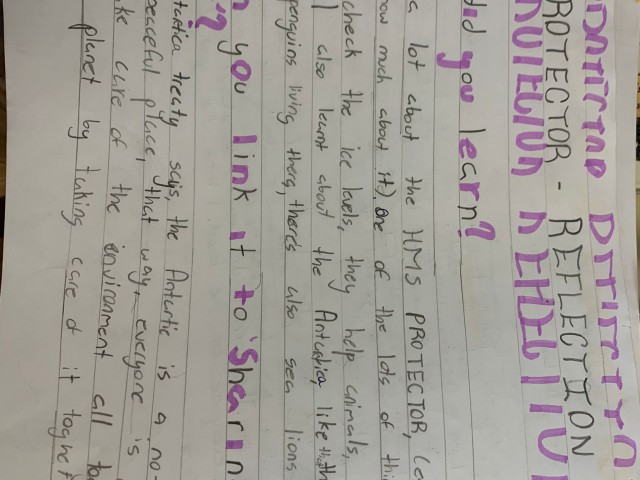 PROTECTOR - REFLECTION
did you learn?
a lot about the HMS PROTECTOR,
much about it), one of the lots of
check the ice levels, they help animals,
I also learnt about the Antcatica, like
penguins living there, there's also sea lions
you link it to 'Sharin
treaty says, the Antartic is a no-
peaceful place, that way, everyone is
care of the environment all
planet by taking care of it